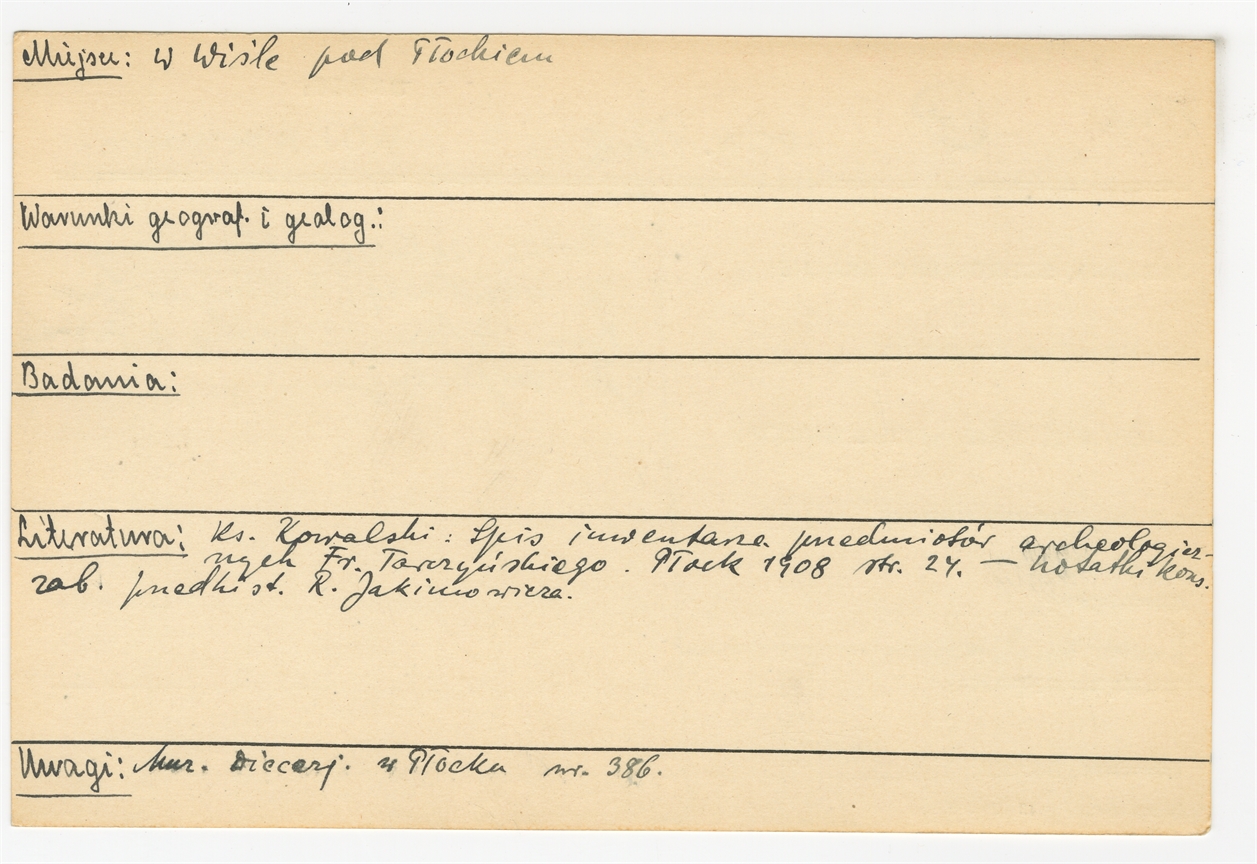 Miejsce: w Wiśle pod Płockiem
Warunki geograf. i geolog.:
Badania:
Literatura: Ks. Kowalski: Spis inwentarza przedmiotów archeologicz-
nych Fr. Tarczyńskiego. Płock 1908 str. 24. — Notatki kons.
zab. przedhist. R. Jakimowicza.
Uwagi: Muz. Diecezj. w Płocku nr. 386.